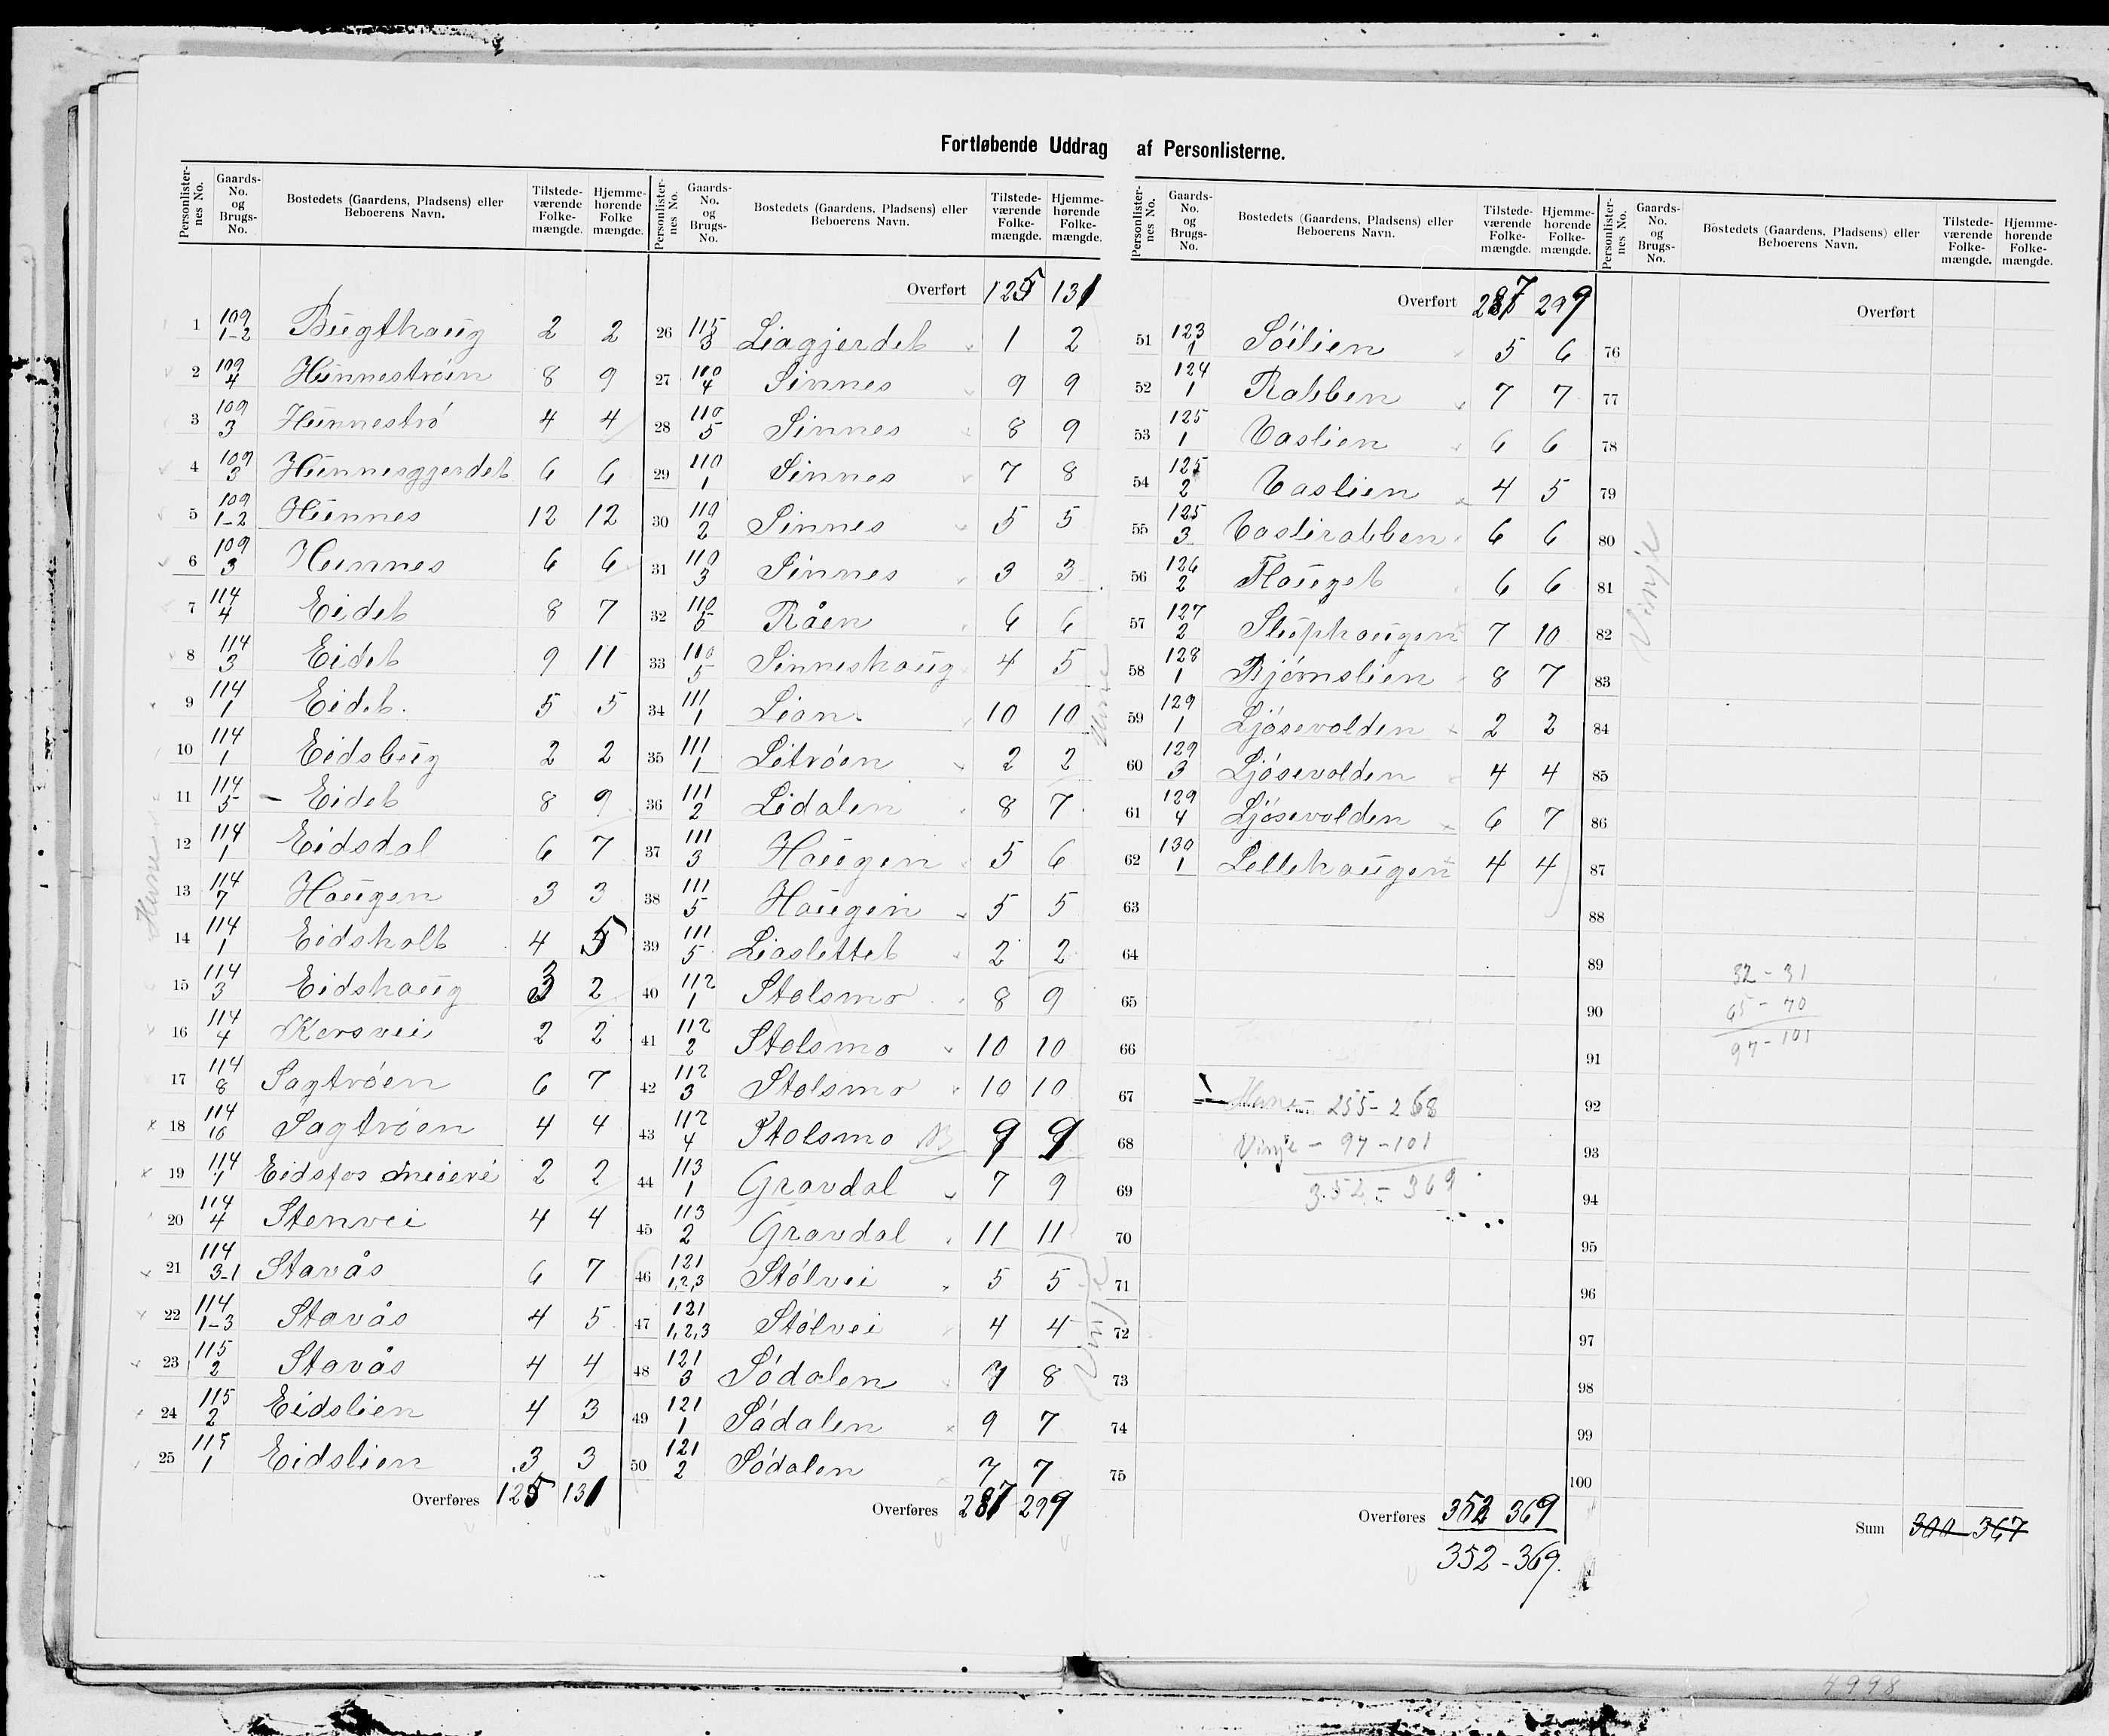 Fortløbende Uddrag af Personlisterne.
Personlister-nes No. Gaards-No. og Brugs-No. Bostedets (Gaardens, Pladsens) eller Beboerens Navn. Tilstede-værende Folke-mængde. Hjemme-hørende Folke mængde.
1 109 1-2 Bugthaug 2 2
2 109 4 Hunnestrøen 8 9
3 109 3 Hunnestrø 4 4
4 109 3 Hunnesgjerdet 6 6
5 109 1-2 Hunnes 12 12
6 109 3 Hunnes 6 6
7 114 4 Eidet 8 7
8 114 3 Eidet 9 11
9 114 1 Eidet. 5 5
10 114 1 Eidsbug 2 2
11 114 5 - Eidet 8 9
12 114 1 Eidsdal 6 7
13 114 7 Haugen 3 3
14 114 1 Eidsholt 4 5
15 114 3 Eidshaug 3 2
16 114 4 Korsvei 2 2
17 114 8 Sagtrøen 6 7
18 114 10 Sagtrøen 4 4
19 114 1 Eidsfos 2 2
20 114 4 Stenvei 4 4
21 114 3-1 Stavås 6 7
22 114 1-3 Stavås 4 5
23 115 2 Stavås 4 4
24 115 2 Eidslien 4 3
25 115 1 Eidslien 3 3
Overføres 125 131
Hune
Personlister-nes No. Gaards-No. og Brugs-No. Bostedets (Gaardens, Pladsens) eller Beboerens Navn. Tilstede-værende Folke-mængde. Hjemme-hørende Folke-mængde.
Overført 125 131
26 115 3 Liagjerdet 1 2
27 110 4 Sinnes 9 9
28 110 5 Sinnes 8 9
29 110 1 Sinnes 7 8
30 110 2 Sinnes 5 5
31 110 3 Sinnes 3 3
32 110 5 Råen 6 6
33 110 5 Sinneshaug 4 5
34 111 1 Lian. 10 10
35 111 1 Litrøen 2 2
36 111 2 Lidalen 8 7
37 111 3 Haugen 5 6
38 111 5 Haugen 5 5
39 111 5 Liaslettet 2 2
40 112 1 Stolsmo 8 9
41 112 2 Stolsmo 10 10
42 112 3 Stolsmo 10 10
43 112 4 Stolsmo 9 9
44 113 1 Gravdal 7 9
45 113 2 Gravdal 11 11
46 121 1,2,3 Stølvei 5 5
47 121 1,2,3 Stølvei 4 4
48 121 3 Sødalen 7 8
49 121 1 Sødalen 9 7
50 121 2 Sødalen 7 7
Overføres 287 299
Hune
Vinje
Personlister-nes No. Gaards-No. og Brugs-No. Bostedets (Gaardens, Pladsens) eller Beboerens Navn. Tilstede-værende Folke-mængde. Hjemme-hørende Folke-mængde.
Overført 287 299
51 123 1 Søilien 5 6
52 124 1 Rabben 7 7
53 125 1 Vaslien 6 6
54 125 2 Vaslien 4 5
55 125 3 Vaslirabben 6 6
56 126 2 Hauget 6 6
57 127 2 Sluphaugen 7 10
58 128 1 Bjørnslien 8 7
59 129 1 Ljøsevolden 2 2
60 129 3 Ljøsevolden 4 4
61 129 4 Ljøsevolden 6 7
62 130 1 Lellehaugen 4 4
63
64
65
66
67
68
69
70
71
72
73
74
75
Hune - 255 - 268
Vinje - 97 - 101
352 - 369
Overføres 352 369
352 - 369.
Personlister-nes No. Gaards-No. og Brugs-No. Bostedets (Gaardens, Pladsens) eller Beboerens Navn. Tilstede-værende Folke-mængde. Hjemme-hørende Folke-mængde.
Overført
76
77
78
79
80
81
82
83
84
85
86
87
88
89
90
91
92
93
94
95
96
97
98
99
100
Vinje
32 - 31
65 - 70
97 - 101
Sum 300 367
4998